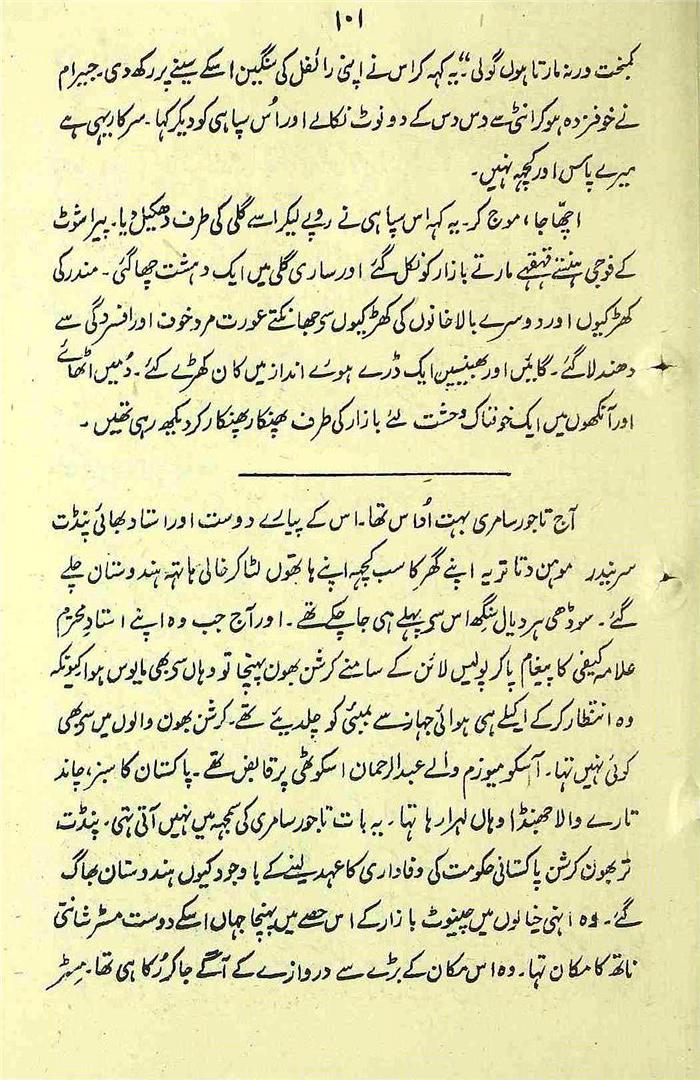 ۱۰۱
کمبخت ورنہ مارتا ہوں گولی۔“ یہ کہہ کر اس نے اپنی رائفل کی سنگین اسکے سینے پر رکھ دی۔ جیرام
نے خوفزدہ ہو کر انٹی سے دس دس کے دو نوٹ نکالے اور اُس سپاہی کو دیکر کہا۔ سرکار یہی ہے
میرے پاس اور کچہہ نہیں۔
اچّھا جا، موج کر۔ یہ کہہ اس سپاہی نے روپے لیکر اسے گلی کی طرف دھکیل دیا۔ پیراشوٹ
کے فوجی ہنستے قہقہے مارتے بازار کو نکل گئے اور ساری گلی میں ایک دہشت چھا گئی۔ مندر کی
کھڑکیوں اور دوسرے بالا خانوں کی کھڑکیوں سی جھانکتے عورت مرد خوف اور افسردگی سے
دھندلا گئے۔ گائیں اور بھینسیں ایک ڈرے ہوئے انداز میں کان کھڑے کئے۔ دُمیں اٹھائے
اور آنکھوں میں ایک خوفناک وحشت لئے بازار کی طرف پھنکار پھنکار کر دیکھ رہی تھیں۔
آج تاجور سامری بہت اُداس تھا۔ اس کے پیارے دوست اور استاد بھائی پنڈت
سرنیدر موہن دتا تریہ اپنے گھر کا سب کچہہ اپنے ہاتھوں لٹا کر خالی ہاتہہ ہندوستان چلے
گئے۔ سوڈھی ہردیال سنگھ اس سی پہلے ہی جا چکے تھے۔ اور آج جب وہ اپنے استادِ محترم
علامہ کیفی کا پیغام پا کر پولیس لائن کے سامنے کرشن بھون پہنچا تو وہاں سی بھی مایوس ہوا کیونکہ
وہ انتظار کر کے اکیلے ہی ہوائی جہاز سے بمبئی کو چلدیئے تھے۔ کرشن بھون والوں میں سی بھی
کوئی نہیں تہا۔ آسکو میوزم والے عبدالرحمان اسکوٹھی پر قابض تھے۔ پاکستان کا سبز، چاند
تارے والا جھنڈا وہاں لہرا رہا تہا۔ یہ بات تاجور سامری کی سمجہہ میں نہیں آتی تہی۔ پنڈت
تربھون کرشن پاکستانی حکومت کی وفاداری کا عہد لینے کے باوجود کیوں ہندوستان بھاگ
گئے۔ وہ انہی خیالوں میں چینوٹ بازار کے اس حصے میں پہنچا جہاں اسکے دوست مسٹر شانتی
ناتھ کا مکان تہا۔ وہ اس مکان کے بڑے سے دروازے کے آگے جا کر رُکا ہی تھا۔ مسٹر